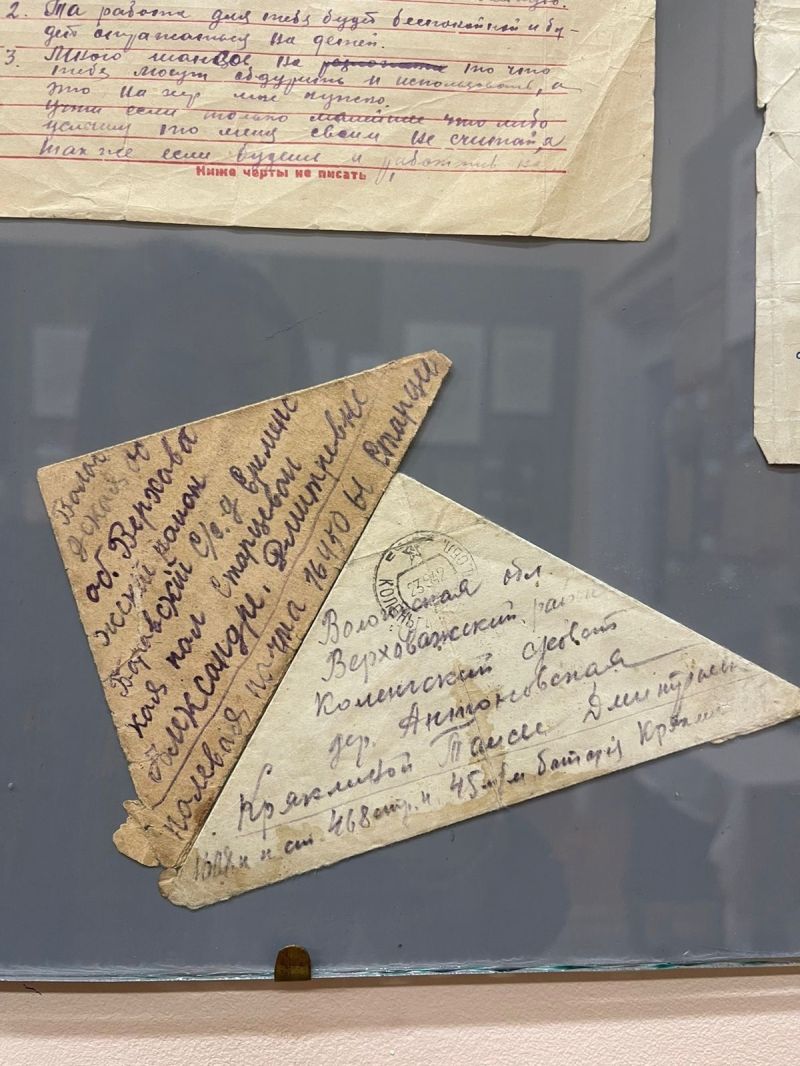 2. Та работа для тебя будет беспокойной и бу-
дет отражаться на детей.
3. Много шансов на то что
тебя могут обдурить и использовать, а
это на хер мне нужно.
если только что либо
услышу то меня своим не считай
так же если будешь и работать
Ниже черты не писать
Волог
дская об
об. Верхова
жский район
С/с. д. Еремин
ская пол Старцевой
Александре. Дмитревне
полевая почта 16450 Ы Старцев
23 9 42
Вологодская обл.
Верховажский район
Коленгский с/совет
дер. Антоновская
Кряклиной Таисье Дмитрьевн
1608 п п ст. 468 стр. п. 45 м/м батарея